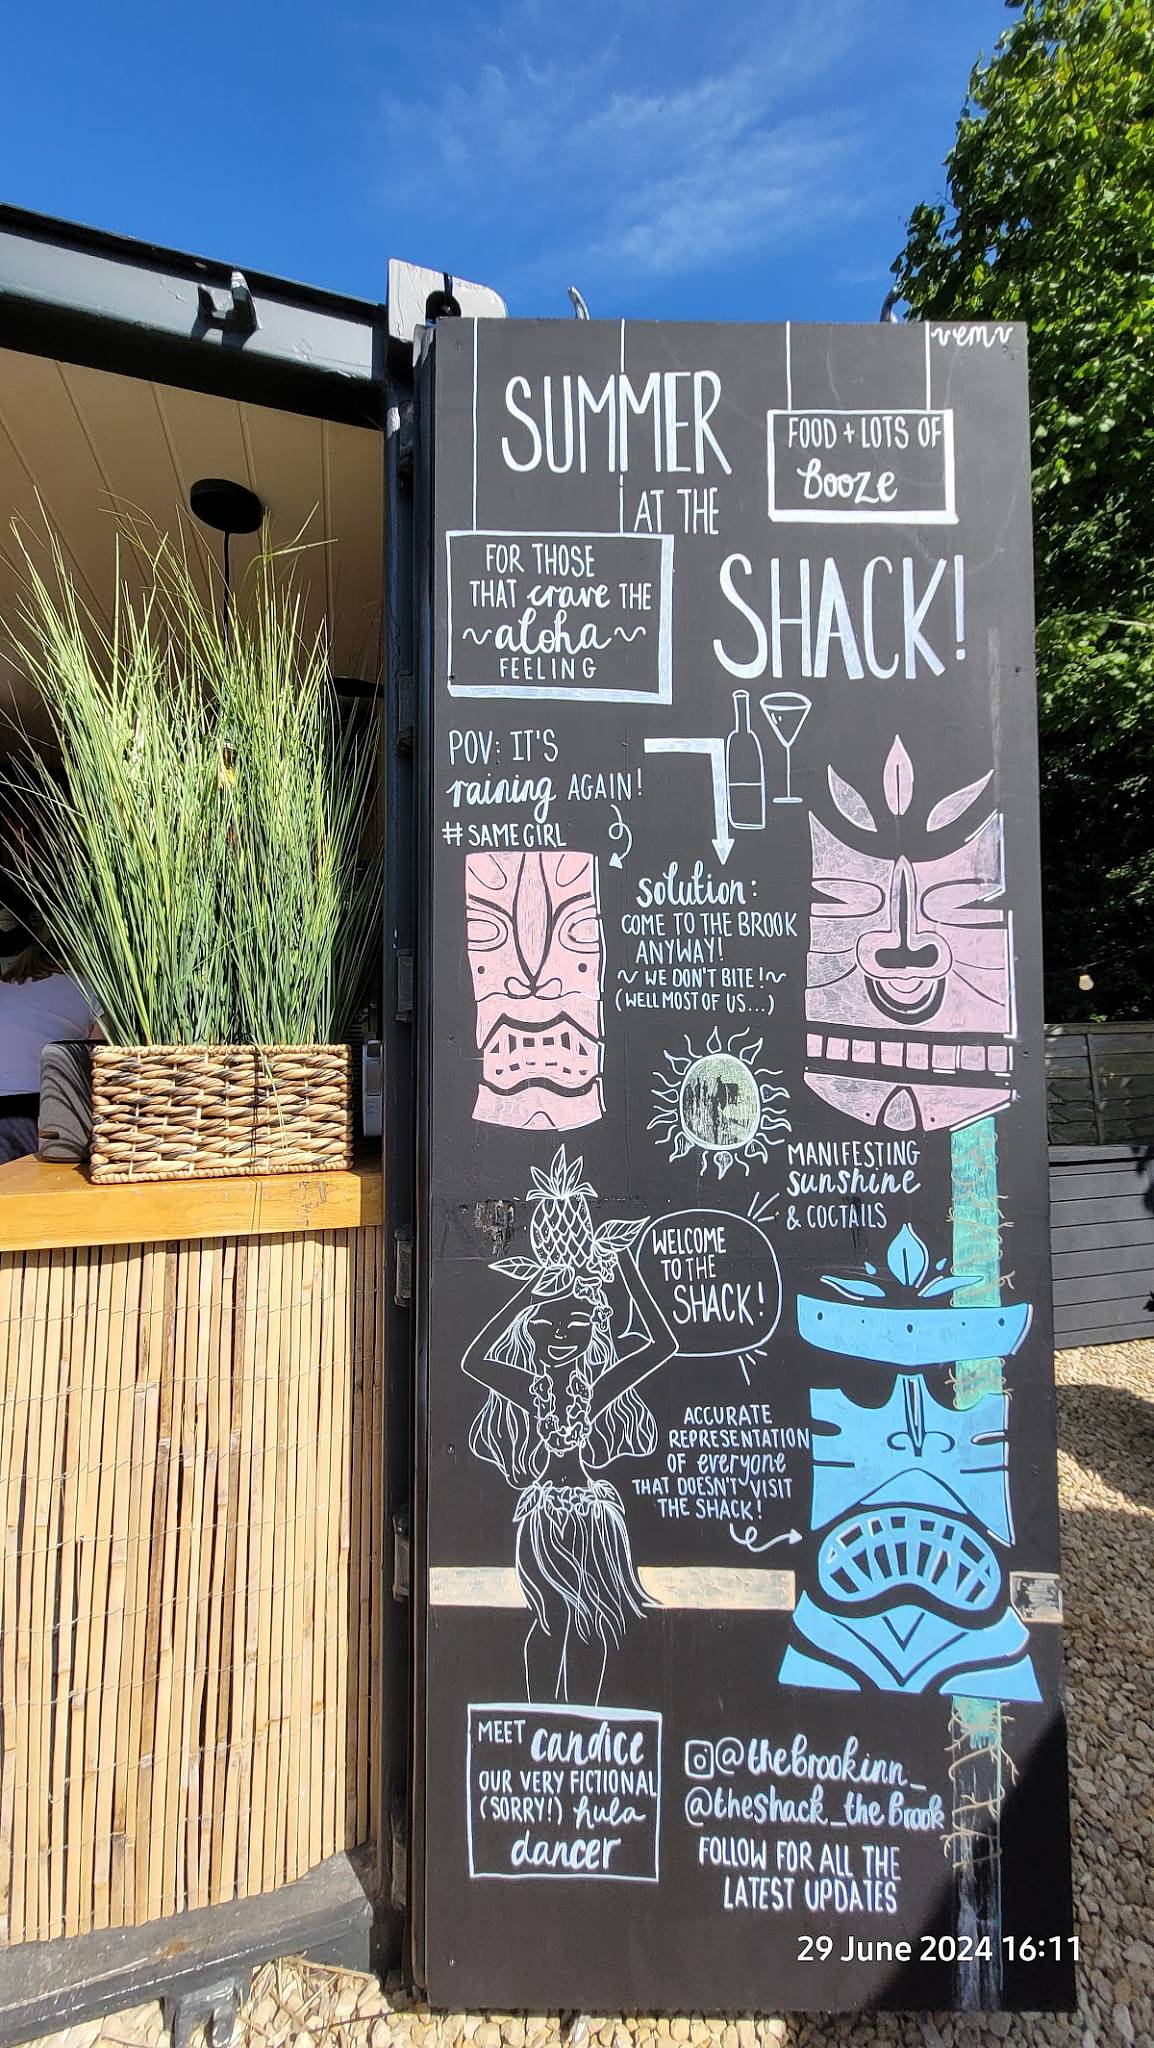 ~em~
SUMMER
AT THE
SHACK!
FOOD + LOTS OF
booze
FOR THOSE
THAT crave THE
~aloha~
FEELING
POV: IT'S
raining AGAIN!
# SAME GIRL
solution:
COME TO THE BROOK
ANYWAY!
~ WE DON'T BITE! ~
(WELL MOST OF US...)
MANIFESTING
sunshine
& COCTAILS
WELCOME
TO THE
SHACK!
ACCURATE
REPRESENTATION
OF everyone
THAT DOESN'T VISIT
THE SHACK!
MEET candice
OUR VERY FICTIONAL
(SORRY!) hula
dancer
@thebrookinn_
@theshack_thebrook
FOLLOW FOR ALL THE
LATEST UPDATES
29 June 2024 16:11